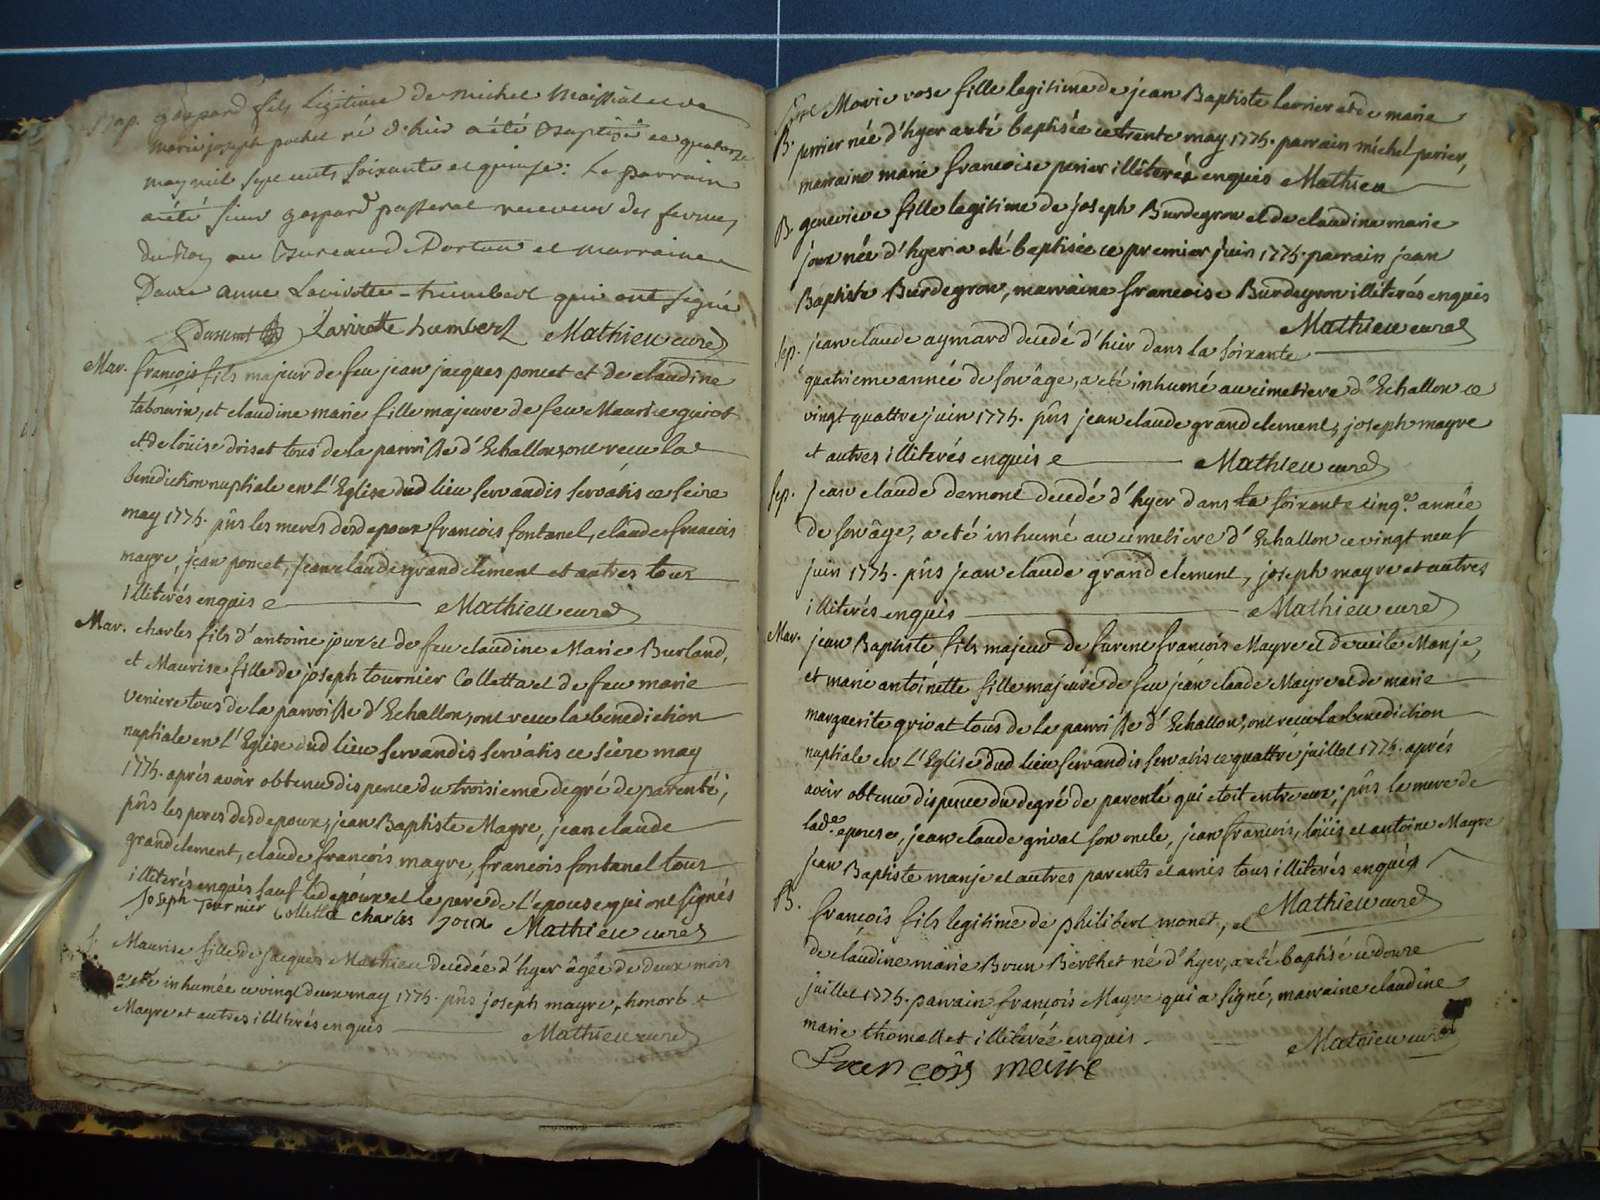 Bap. gaspard fils legitime de michel Maissiat et de
marie joseph pochet né d'hier a été Baptisé ce quatorze
may mil sept cents soixante et quinze: Le parrain
a été sieur gaspard passerat receveur des fermes
du Roy au Bureau de Dortan et marraine
Dame anne Lavirotte - humbert qui ont signé
Lavirotte humbert Mathieu curé
Mar. françois fils majeur de feu jean jacques poncet et de claudine
tabourin, et claudine marie fille majeure de feu Maurice guirot
et de loüise driset tous de la parroisse d'Echallon, ont recu la
benediction nuptiale en L'Eglise dud lieu servandis servatis ce seize
may 1775. pñs les meres desd epoux françois fontanel, claude françois
mayre, jean poncet, jean claude grandclement et autres tous
illiterés enquis e Mathieu curé
Mar. charles fils d'antoine joux et de feu claudine Marie Burland,
et Maurise fille de joseph tournier Colletta et de feu marie
veniere tous de la parroisse d'Echallon, ont recu la benediction
nuptiale en L'Eglise dud lieu servandis servatis ce seize may
1775. aprés avoir obtenu dispence du troisieme degré de parenté;
pñs les peres desd epoux, jean Baptiste Mayre, jean claude
grandclement, claude françois mayre, françois fontanel tous
illiterés enquis sauf led epoux et le pere de L'epouse qui ont signés
Joseph Tournier Collettaz charles joux Mathieu curé
S. Maurise fille de jacques Mathieu decedée d'hyer âgée de deux mois
a eté inhumée ce vingt deux may 1775. pñs joseph mayre, honoré
Mayre et autres illiterés enquis Mathieu curé
Marie rose fille legitime de jean Baptiste perrier et de marie
B. perrier née d'hyer a eté baptisée ce trente may 1775. parrain michel perier,
marraine marie françoise perier illiterés enquis Mathieu
B. genevieve fille legitime de joseph Burdegron et de claudine marie
joux née d'hyer a eté baptisée ce premier juin 1775. parrain jean
Baptiste Burdegron, marraine françoise Burdegron illiterés enquis
Mathieu curé
Sep. jean claude aymard decedé d'hier dans la soixante
quatrieme année de son âge, a eté inhumé au cimetiere d'Echallon ce
vingt quattre juin 1775. pñs jean claude grandclement, joseph mayre
et autres illiterés enquis e Mathieu curé
Sep. jean claude demont decedé d'hyer dans la soixante cinqe. année
de son âge, a eté inhumé au cimetiere d'Echallon ce vingt neuf
juin 1775. pñs jean claude grandclement, joseph mayre et autres
illiterés enquis Mathieu curé
Mar. jean Baptiste fils majeur de françois Mayre et de Manje,
et marie antoinette fille majeure de feu jean claude Mayre et de marie
marguerite grivat tous de la parroisse d'Echallon, ont recu la benediction
nuptiale en L'Eglise dud lieu servandis servatis ce quattre juillet 1775. aprés
avoir obtenu dispence du degré de parenté qui etoit entre eux; pñs la mere de
lade. epouse, jean claude grivat son oncle, jean françois, loüis et antoine Mayre
jean Baptiste manje et autres parents et amis tous illiterés enquis
Mathieu curé
B. françois fils legitime de philibert monet, et
de claudine marie Brun Berthet né d'hyer, a eté baptisé ce douze
juillet 1775. parrain françois Mayre qui a signé, marraine claudine
marie thomasset illiterée enquis. Mathieu curé
François maire